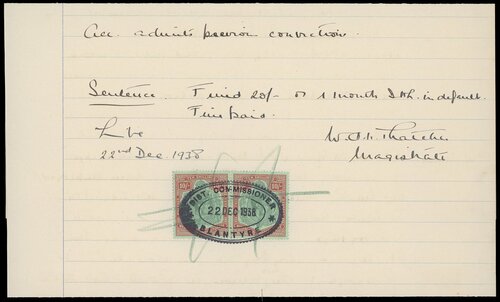 Acc. admits previous conviction.
Sentence. Fined 20/- or 1 month I.H.L. in default.
Fine paid.
Lbe
22nd Dec. 1938
Thatcher
Magistrate
10/- 10/-
DIST. COMMISSIONER
22 DEC 1938
BLANTYRE